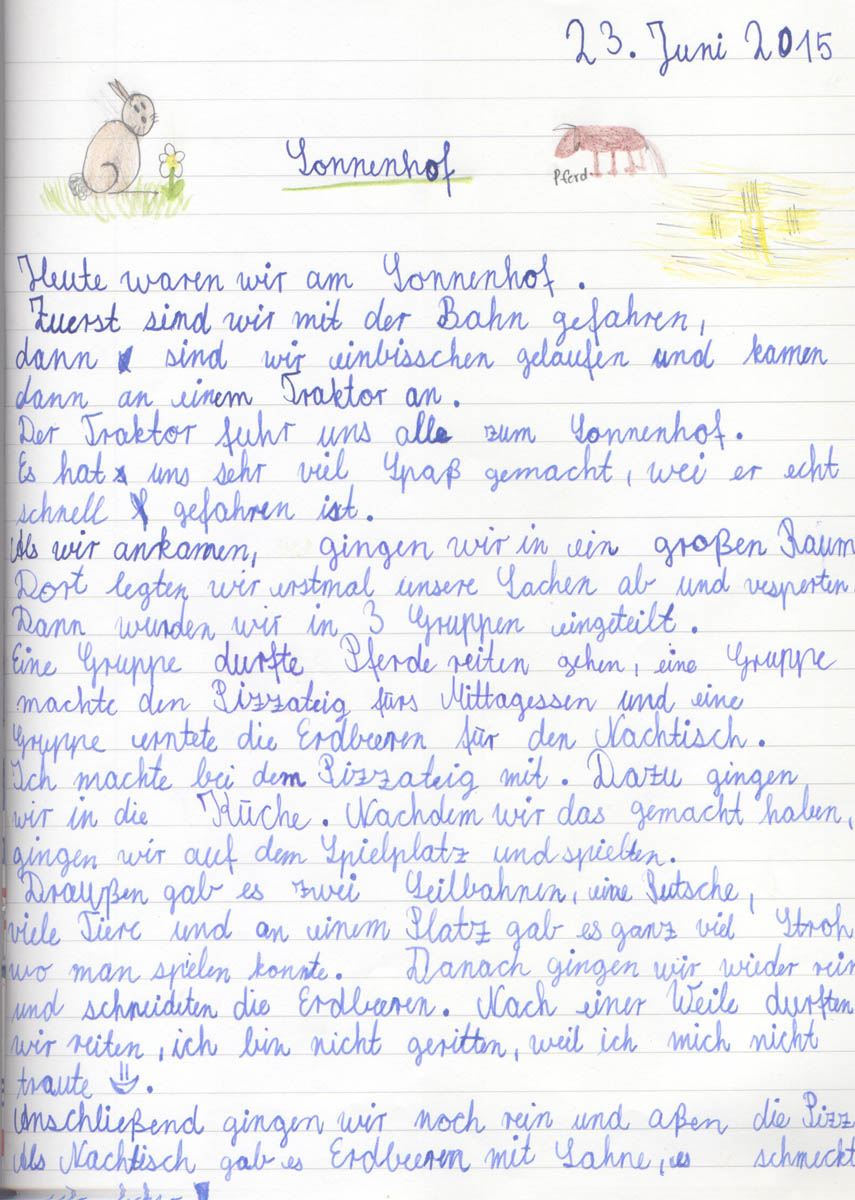 23. Juni 2015
Sonnenhof
Pferd
Heute waren wir am Sonnenhof.
Zuerst sind wir mit der Bahn gefahren,
dann sind wir einbisschen gelaufen und kamen
dann an einem Traktor an.
Der Traktor fuhr uns alle zum Sonnenhof.
Es hat uns sehr viel Spaß gemacht, wei er echt
schnell gefahren ist.
Als wir ankamen, gingen wir in ein großen Raum
Dort legten wir erstmal unsere Sachen ab und vesperten.
Dann wurden wir in 3 Gruppen eingeteilt.
Eine Gruppe durfte Pferde reiten gehen, eine Gruppe
machte den Pizzateig fürs Mittagessen und eine
Gruppe erntete die Erdbeeren für den Nachtisch.
Ich machte bei dem Pizzateig mit. Dazu gingen
wir in die Küche. Nachdem wir das gemacht haben,
gingen wir auf dem Spielplatz und spielten.
Draußen gab es zwei Seilbahnen, eine Rutsche,
viele Tiere und an einem Platz gab es ganz viel Stroh
wo man spielen konnte. Danach gingen wir wieder rein
und schneideten die Erdbeeren. Nach einer Weile durften
wir reiten, ich bin nicht geritten, weil ich mich nicht
traute.
Anschließend gingen wir noch rein und aßen die Pizz
Als Nachtisch gab es Erdbeeren mit Sahne, es schmeckt